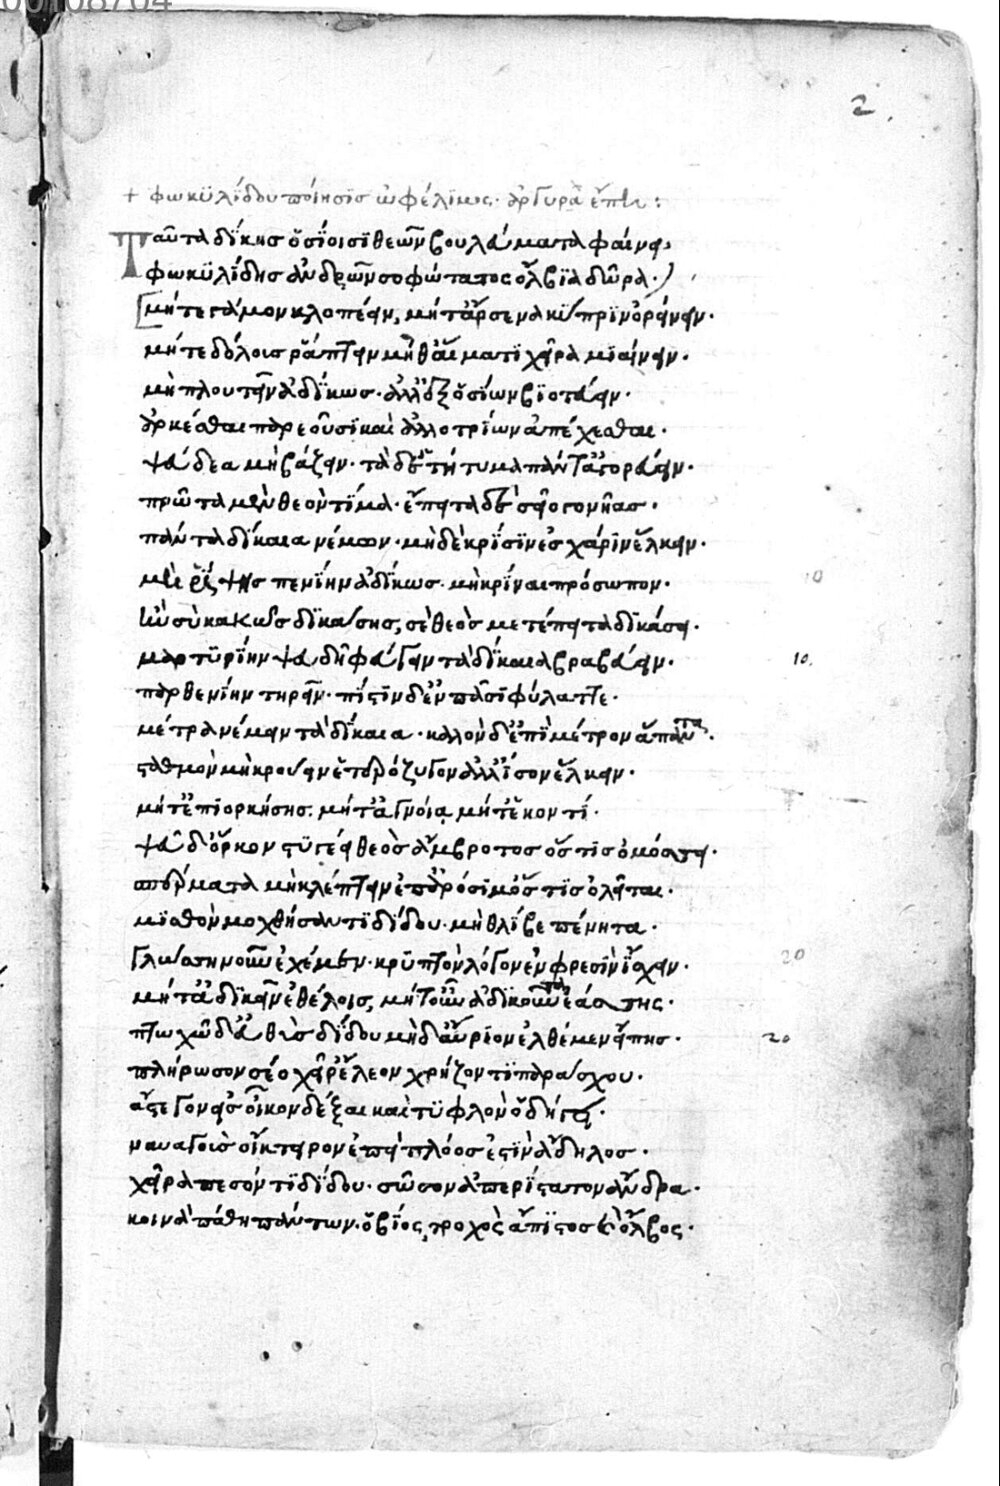 00108704
2.
+ φωκϋλίδου ποίησϊσ ὠφέλϊμος· ἀργυρᾶ ἔπη :
Ταῦτα δΐκησ ὁσΐοισϊ θεῶν βουλεύματα φαίνει
φωκϋλίδησ ἀνδρῶν σοφώτατος ὄλβϊα δῶρα·)
[μήτε γάμον κλοπέειν, μήτ ἄρσενα κϋπρϊν ὀρίνειν·
μήτε δόλοισ ῥάπτειν μήθ αἵματϊ χεῖρα μϊαίνειν·
μὴ πλουτεῖν ἀδΐκωσ· ἀλλ ἐξ ὁσίων βϊοτεύειν·
ἀρκέεσθαι παρεοῦσϊ καὶ ἀλλοτρίων ἀπέχεσθαι·
ψεύδεα μὴ βάζειν· τὰ δ ἐτήτυμα πάντ ἀγορεύειν·
πρῶτα μὲν θεὸν τΐμα· ἔπειτα δὲ σεῖο γονῆας·
πάντα δΐκαια νέμειν· μὴδὲ κρΐσϊν ἐσ χάρϊν ἕλκειν·
10
μὴ ῥίψησ πενΐην ἀδΐκωσ· μὴ κρΐναι πρόσωπον·
ἢν σὺ κακῶσ δϊκάσησ, σὲ θεὸσ μετέπειτα δϊκάσει·
μαρτϋρΐην ψευδῆ φεύγειν τὰ δΐκαια βραβεύειν·
10.
παρθενΐην τηρεῖν· πίστϊν δ ἐν πᾶσϊ φύλαττε·
μέτρα νέμειν τὰ δΐκαια· καλὸν δ ἐπϊμέτρον ἅπαντα·
σταθμὸν μὴ κρούειν ἑτερόζυγον ἀλλ ἴσον ἕλκειν·
μήτ ἐπϊορκήσησ· μήτ ἀγνοία μήτε ἑκοντί·
ψεῦδορκον στϋγέει θεὸσ ἄμβροτος ὅστϊσ ὀμόσσει·
σπέρματα μὴ κλέπτειν ἐπαράσϊμος ὅστϊσ ὀλεῖται·
μϊσθὸν μοχθήσαντϊ δΐδου· μὴ θλΐβε πένητα·
γλώσση νοῦν ἐχέμεν· κρϋπτὸν λόγον ἐν φρεσὶν ἴσχειν·
20
μήτ ἀδϊκεῖν ἐθέλοισ, μήτ οὖν ἀδϊκοῦντα ἐάσσης·
πτωχῶ δ εὐθὺσ δΐδου μὴδ αὔρϊον ἐλθέμεν εἴπησ·
20
πλήρωσον σέο χεῖρ ἔλεον χρήζοντϊ παράσχου·
ἄστεγον εἰσ οἶκον δέξαι καὶ τϋφλὸν ὁδήγει·
ναυαγοὶσ οἴκτειρον ἐπεὶ πλόοσ ἐστϊν ἄδηλοσ·
χεῖρα πεσόντϊ δΐδου· σῶσον ἀπερίστατον ἄνδρα·
κοινὰ πάθη πάντων· ὁ βΐος τροχὸς ἄπϊστοσ ὁ ὄλβος·